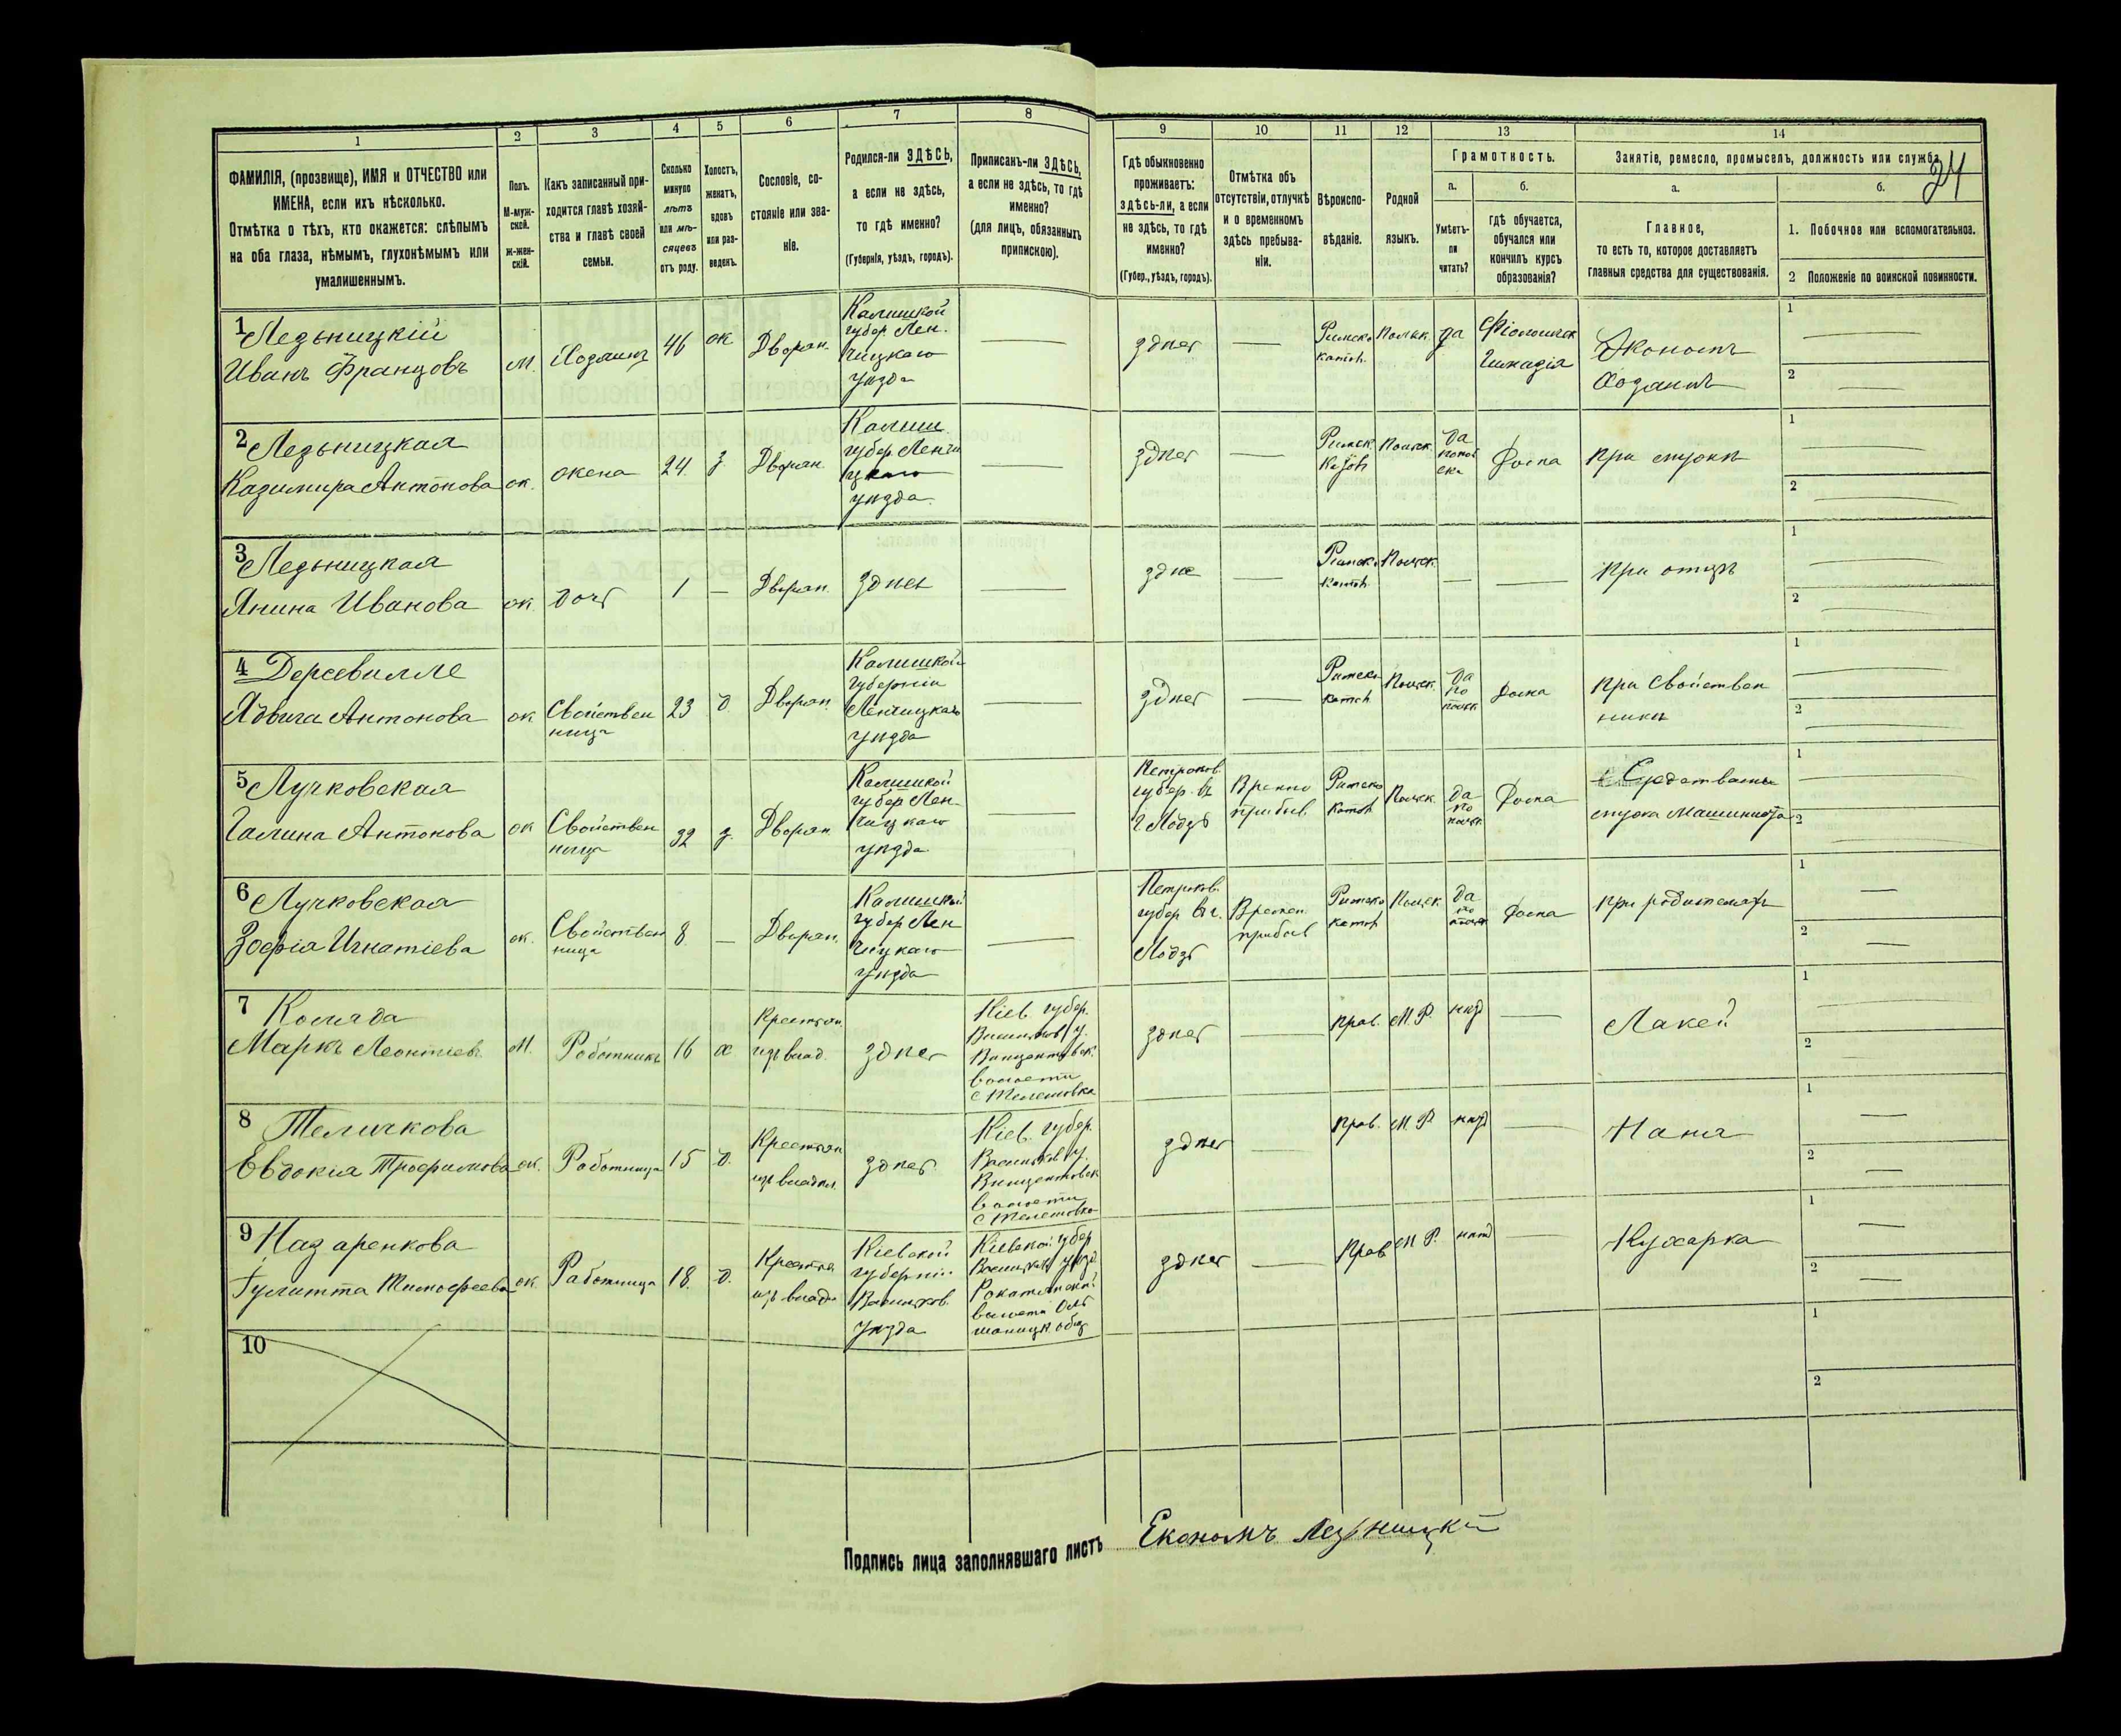 1 2 3 4 5 6 7 8 9 10 11 12 13 14
24
ФАМИЛІЯ, (прозвище), ИМЯ и ОТЧЕСТВО или
ИМЕНА, если ихъ нѣсколько.
Отмѣтка о тѣхъ, кто окажется: слѣпымъ
на оба глаза, нѣмымъ, глухонѣмымъ или
умалишеннымъ.
Полъ.
М-муж-
ской.
ж-жен-
скій.
Какъ записанный при-
ходится главѣ хозяй-
ства и главѣ своей
семьи.
Сколько
минуло
лѣтъ
или мѣ-
сяцевъ
отъ роду.
Холостъ,
женатъ,
вдовъ
или раз-
веденъ.
Сословіе, со-
стояніе или зва-
ніе.
Родился-ли ЗДѢСЬ,
а если не здѣсь,
то гдѣ именно?
(Губернія, уѣздъ, городъ).
Приписанъ-ли ЗДѢСЬ,
а если не здѣсь, то гдѣ
именно?
(для лицъ, обязанныхъ
припискою).
Гдѣ обыкновенно
проживаетъ:
здѣсь-ли, а если
не здѣсь, то гдѣ
именно?
(Губер., уѣздъ, городъ).
Отмѣтка объ
отсутствіи, отлучкѣ
и о временномъ
здѣсь пребыва-
ніи.
Вѣроиспо-
вѣданіе.
Родной
языкъ.
Грамотность.
а.
Умѣетъ-
ли
читать?
б.
гдѣ обучается,
обучался или
кончилъ курсъ
образованія?
Занятіе, ремесло, промыселъ, должность или служба.
а.
Главное,
то есть то, которое доставляетъ
главныя средства для существованія.
б.
1. Побочное или вспомогательное.
2 Положеніе по воинской повинности.
1 Лезьницкій
Иванъ Францовъ
м.
Хозяинъ
46
ж
Дворян.
Калишкой
губер. Лен.
чицкаго
уѣзда
здѣсь
Римско
катол.
Польск.
да
Гимназія
Экономъ
1
2
2 Лезьницкая
Казимира Антонова
ж.
жена
24.
з
Дворян.
Калиш.
губер. Ленчи
цкаго
уѣзда.
здѣсь
Римск.
Польск.
да
Дома
При мужѣ
1
2
3 Лезьницкая
Янина Иванова
ж.
дочь
1
Дворян.
здѣсь
здѣсь
Римско
катол.
Польск.
при отцѣ
1
2
4 Дерсевилле
Ядвига Антонова
ж
Свойствен
ница
23
д.
Дворян.
Калишкой
губерніи
Ленчицкаго
уѣзда
здѣсь
Римско
катол.
Польск.
Да
по
польск.
Дома
при Свойствен
никѣ
1
2
5 Лучковская
Галина Антонова
ж
Свойствен
ница
32
з.
Дворян.
Калишкой
губер Лен-
чицкаго
уѣзда.
Петроков.
губер. въ
г Лодзь
прибыв.
Римско
катол
Польск.
да
по
польск.
Дома
Средствами
мужа машиниста
1
2
6 Лучковская
Зофія Игнатіева
ж.
Свойствен
ница
8.
Дворян.
Калишкой
губер Лен
чицкаго
уѣзда
Петроков.
губер въ г.
Лодзь
Времен.
прибыв
Римско
катол
Польск.
да
по
Дома
при родителяхъ
1
2
7 Коляда
Маркъ Леонтіев.
М.
Работникъ
16
х
Крестян.
изъ влад.
здѣсь
Кіев. губер.
Васильков. у.
Винцентовск.
волости
с Телешовка
здѣсь
прав.
М. Р.
нѣт
Лакей
1
2
8 Теличкова
Евдокія Трофимова
ж.
Работница
15
д.
Крестян
изъ владѣл.
здѣсь
Кіев. губер.
Васильков у.
Винцентовск
волости
с Телешовка
здѣсь
Прав.
М Р.
нѣт
Няня
1
2
9 Назаренкова
Гулитта Тимофеева
ж.
Работница
18.
д.
Крестян
изъ владѣ
Кіевской
губерніи
Васильков.
уѣзда
Кіевской губер
Васильков уѣзд.
волости
здѣсь
Прав
М Р.
нѣт
Кухарка
1
2
10
1
2
Подпись лица заполнявшаго листъ Економъ Лезьницкій